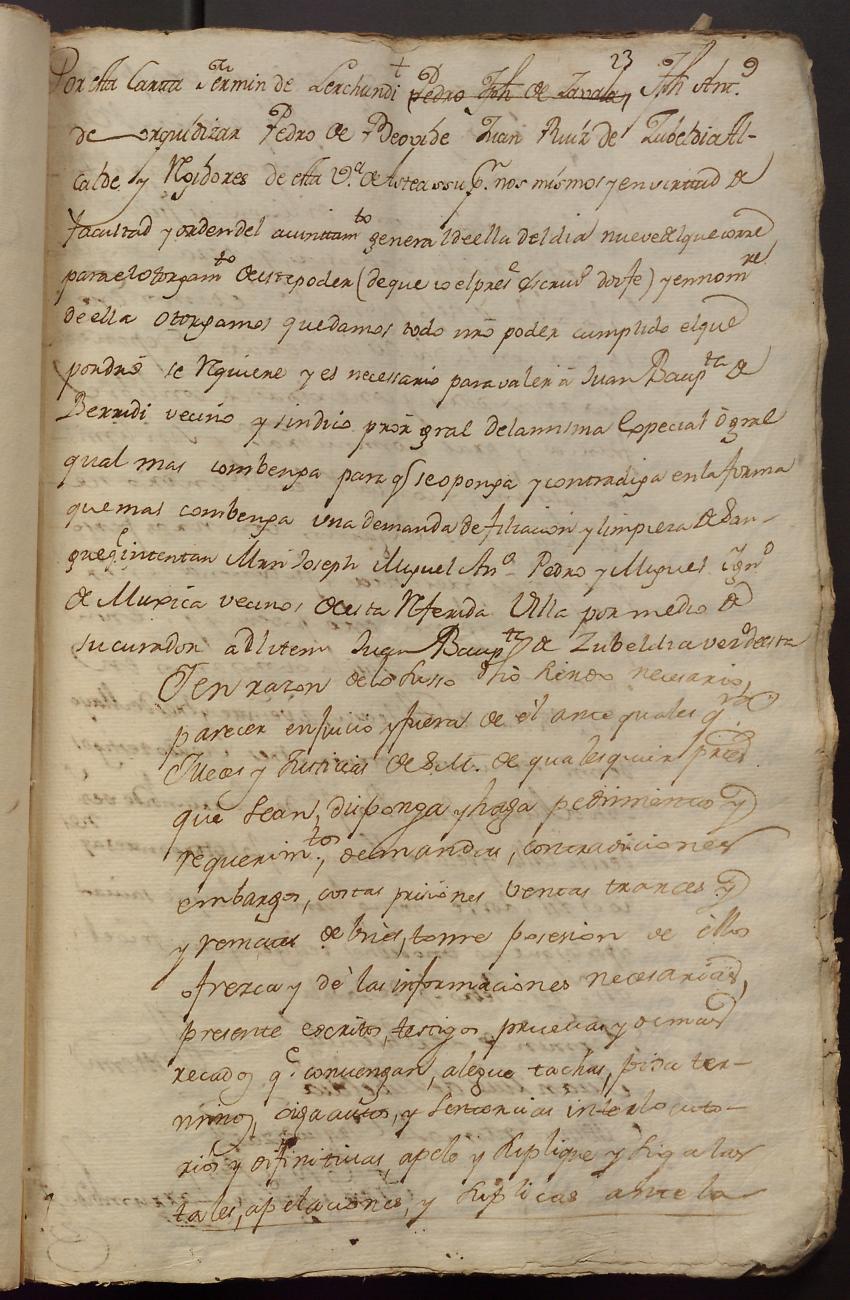 23
Por esta Carta Fermin de Lerchundi Pedro Jph de Zavala, Jph Ant.º
de orquidizar Pedro de Beovide Juan Ruiz de Zubeldia Al-
calde y Rejidores de esta V.ª de Asteassu p.r nos mismos y en virtud de
facultad y orden del aiuntam.to general de ella del dia nueve del que corre
para el otorgam.to de este poder (de que io el pres.e escriv.o doi fe) y en nom.re
de ella otorgamos que damos todo nro poder cumplido el que
por dro se rquiere y es necessario para valer a Juan Baup.ta de
Berridi vecino y sindico pror gral de la misma Especial o gral
qual mas combenga para q se oponga y contradiga en la forma
que mas combenga una demanda de filiacion y limpieza de San-
gre q.e intentan Mrn Joseph Miguel An.o Pedro y Miguel Ign.o
de Muxica vecinos de esta Rferida Villa por medio de
su curador adlitem Juan Baup.ta de Zubeldia vez.o de esta
Y en razon de lo susso dho siendo necesario,
parecer en juicio y fuera de el ante quales q.r
Jueces y Justicias de S.M. de qualesquier partes
que sean, disponga y haga pedimientos y
requerim.tos, demandas, contradiciones
embargos, costas prisiones ventas trances y
y remates de vies, tome posesion de ellos
ofrezca y dè las informaciones necesarias,
presente escritos, testigos, pruevas y demas
recados q.e convengan, alegue tachas, pida ter-
minos, oiga autos, y sentencias interlocuto-
rias y difinitivas, apele y suplique y siga las
tales, apelaciones, y suplicas ante la